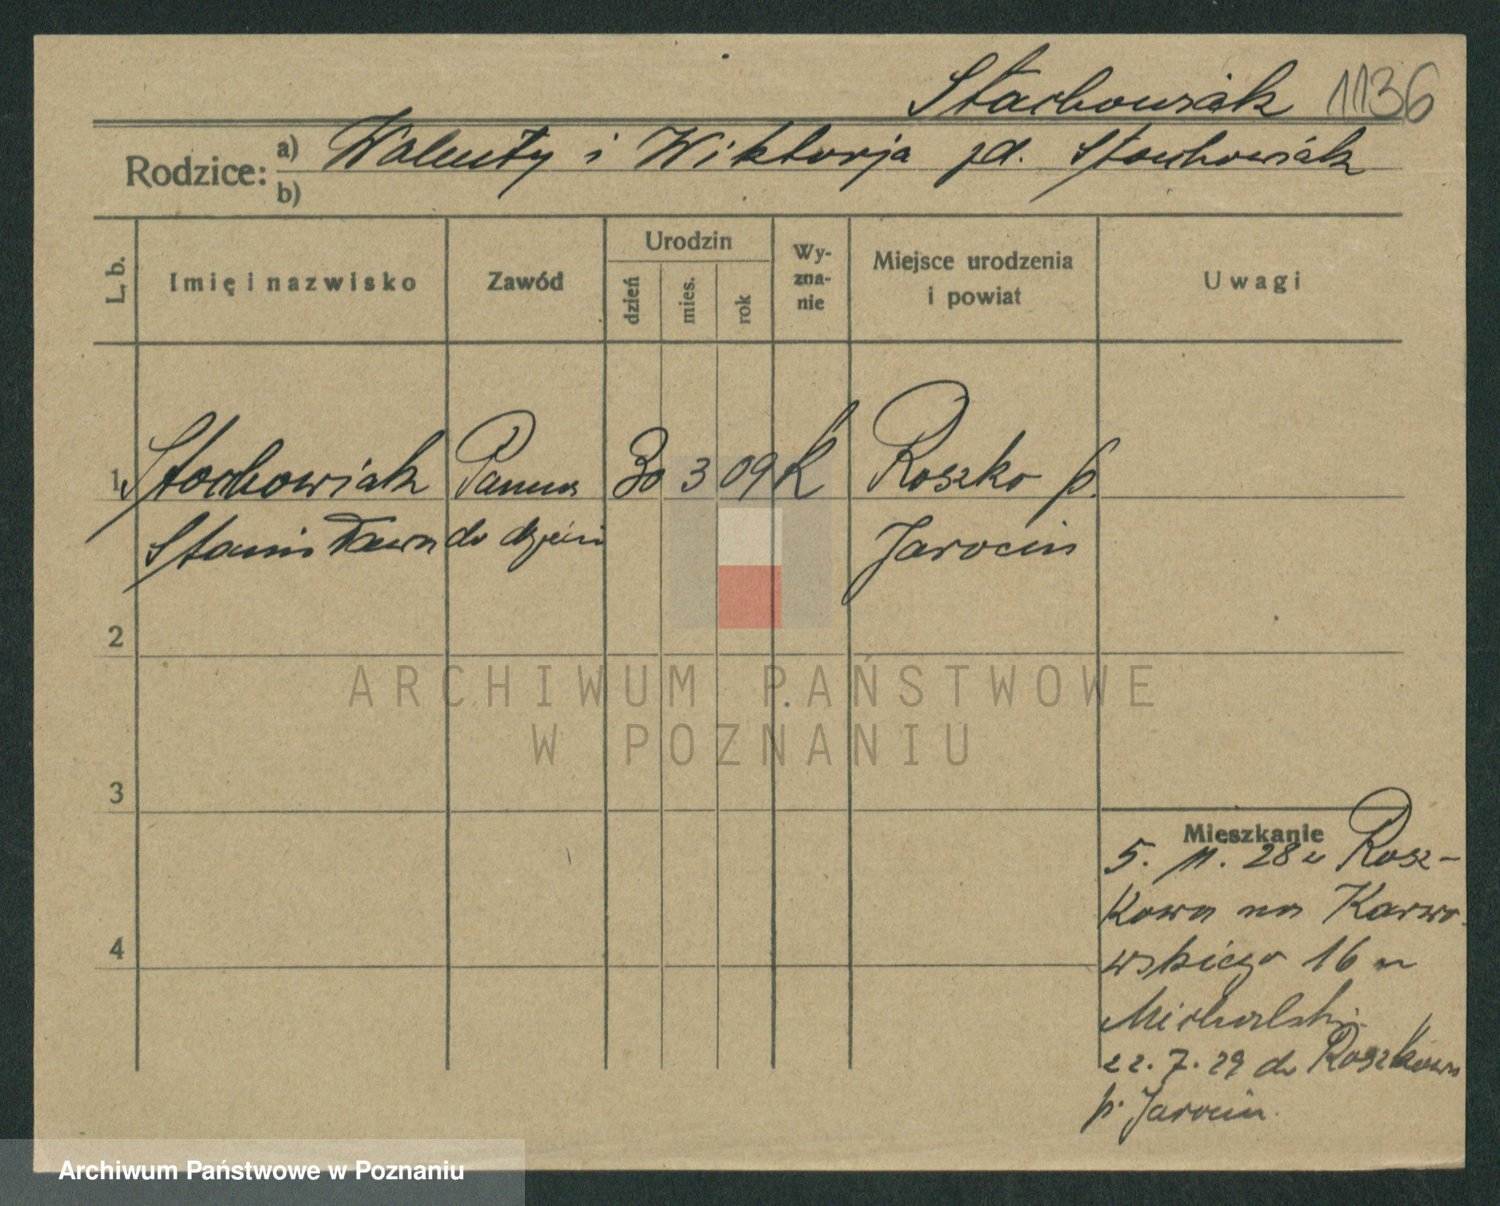 Stachowiak 1136
Rodzice: a) Walenty i Wiktorja jd. Stachowiak
b)
L. b. Imię i nazwisko Zawód Urodzin dzień mies. rok Wyznanie Miejsce urodzenia i powiat Uwagi
1 Stachowiak Panna 30 3 09 K Roszko p.
Stanisława do dzieci Jarocin
2
ARCHIWUM PAŃSTWOWE
W POZNANIU
3
Mieszkanie
5. 11. 28 z Rosz-
kowa na Karwo-
wskiego 16 u
Michalski
22. 7. 29 do Roszkowa
p. Jarocin
4
Archiwum Państwowe w Poznaniu